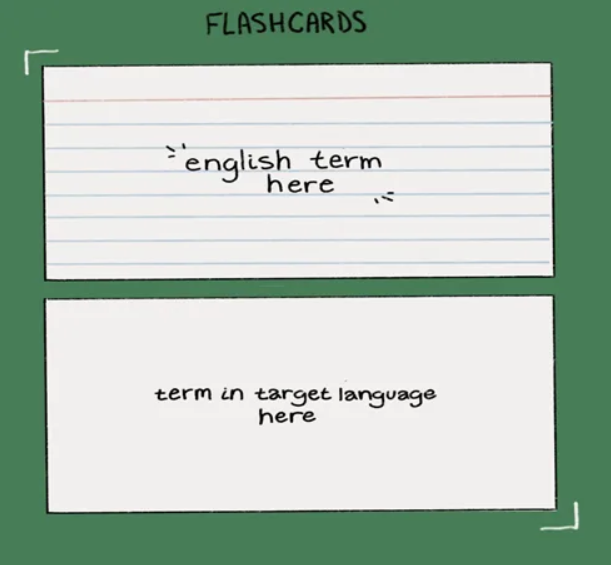 FLASHCARDS
english term
here
term in target language
here